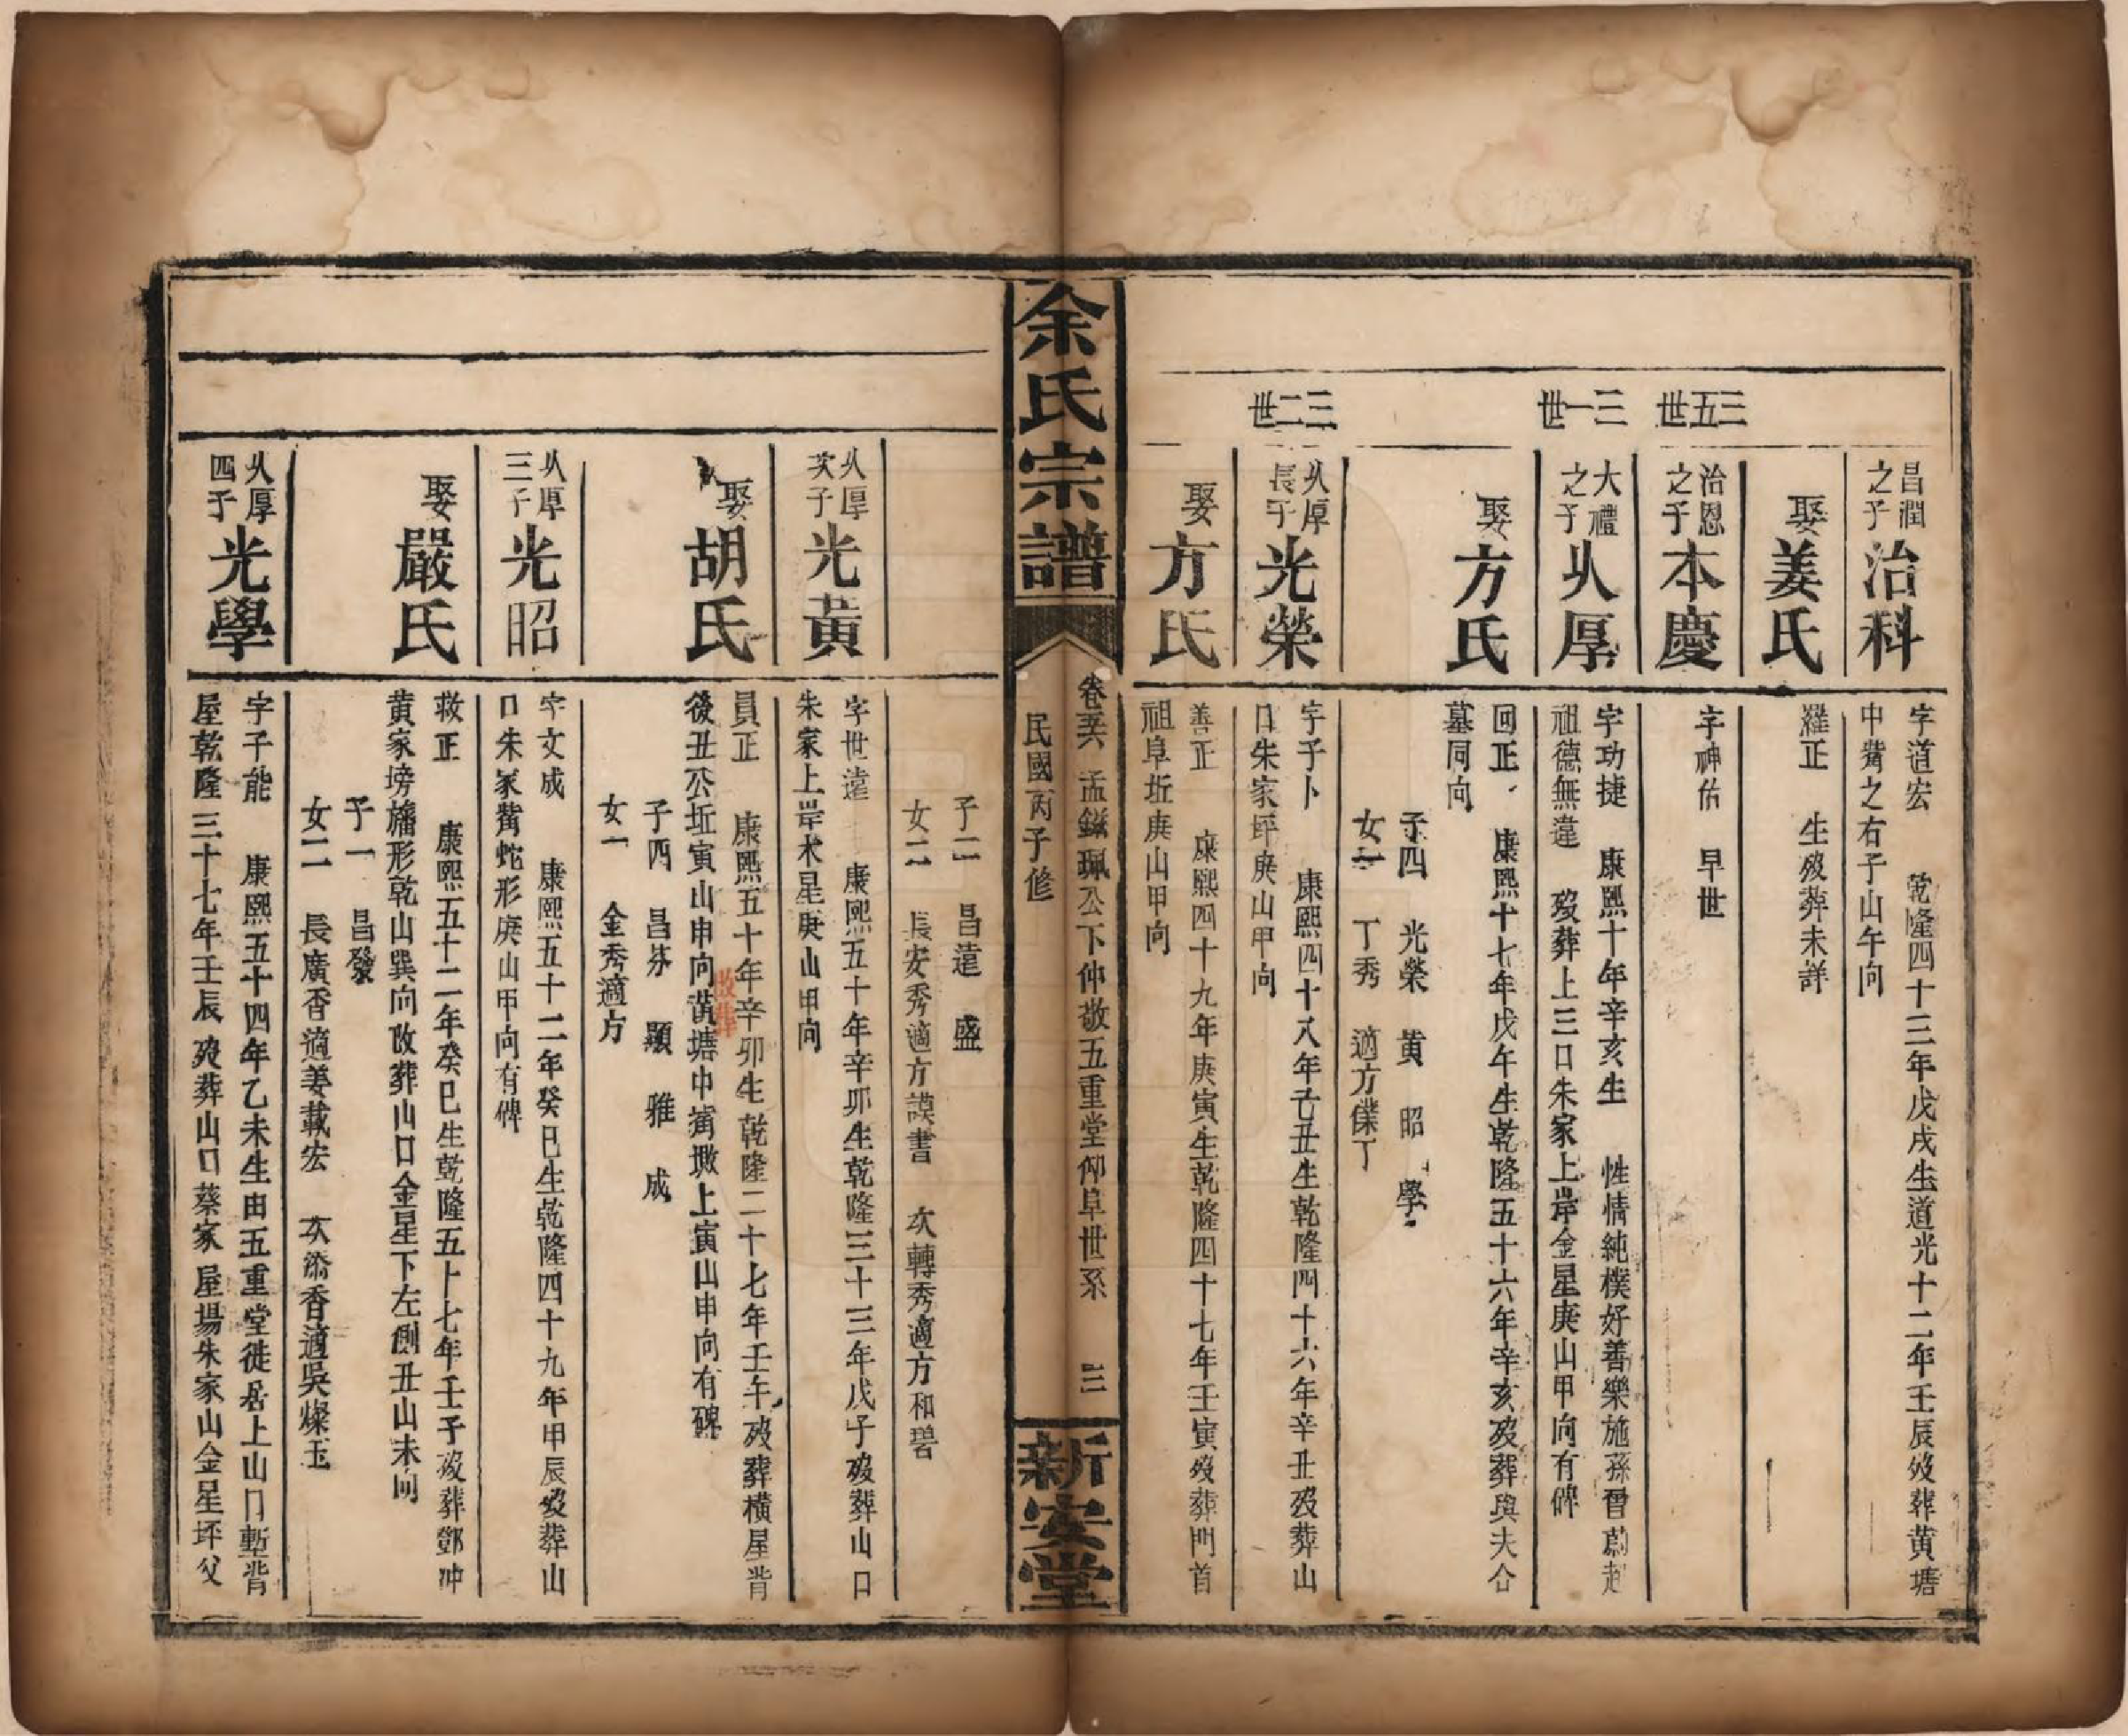 昌潤
之子
治科
字道宏 乾隆四十三年戊戌生道光十二年壬辰歿葬黄塘
中觜之右子山午向
娶
姜氏
羅正 生歿葬未詳
三五世
治恩
之子
本慶
字神佑 早世
三一世
大禮
之子
从厚
字功捷 康熙十年辛亥生 性情純樸好善樂施孫晉蔚起
祖德無違 歿葬上三口朱家上岸金星庚山甲向有碑
娶
方氏
回正 康熙十七年戊午生乾隆五十六年辛亥歿葬與夫合
墓同向
子四 光榮 黄 昭 學
女一 丁秀 適方僕丁
三二世
从厚
長子
光榮
字子卜 康熙四十八年己丑生乾隆四十六年辛丑歿葬山
口朱家坪庚山甲向
娶
方氏
善正 康熙四十九年庚寅生乾隆四十七年壬寅歿葬門首
祖阜坵庚山甲向
余氏宗譜
卷 孟鎡珮公下仲敬五重堂仰阜世系 三
民國丙子修
新安堂
子二 昌遠 盛
女二 長安秀適方謨書 次轉秀適方和碧
从厚
次子
光黄
字世遠 康熙五十年辛卯生乾隆三十三年戊子歿葬山口
朱家上岸木星庚山甲向
娶
胡氏
員正 康熙五十年辛卯生乾隆二十七年壬午歿葬横星背
後丑公坵寅山申向黄塘中 墩上寅山申向有碑
改葬
子四 昌芬 顯 雅 成
女一 金秀適方
从厚
三子
光昭
字文成 康熙五十二年癸巳生乾隆四十九年甲辰歿葬山
口朱家觜蛇形庚山甲向有碑
娶
嚴氏
救正 康熙五十二年癸巳生乾隆五十七年壬子歿葬鄧冲
黄家塝旛形乾山巽向改葬山口金星下左側丑山未向
子一 昌發
女二 長廣香適姜載宏 次 香適吳燦玉
从厚
四子
光學
字子能 康熙五十四年乙未生由五重堂徙居上山口塹背
屋乾隆三十七年壬辰歿葬山口蔡家屋場朱家山金星坪父